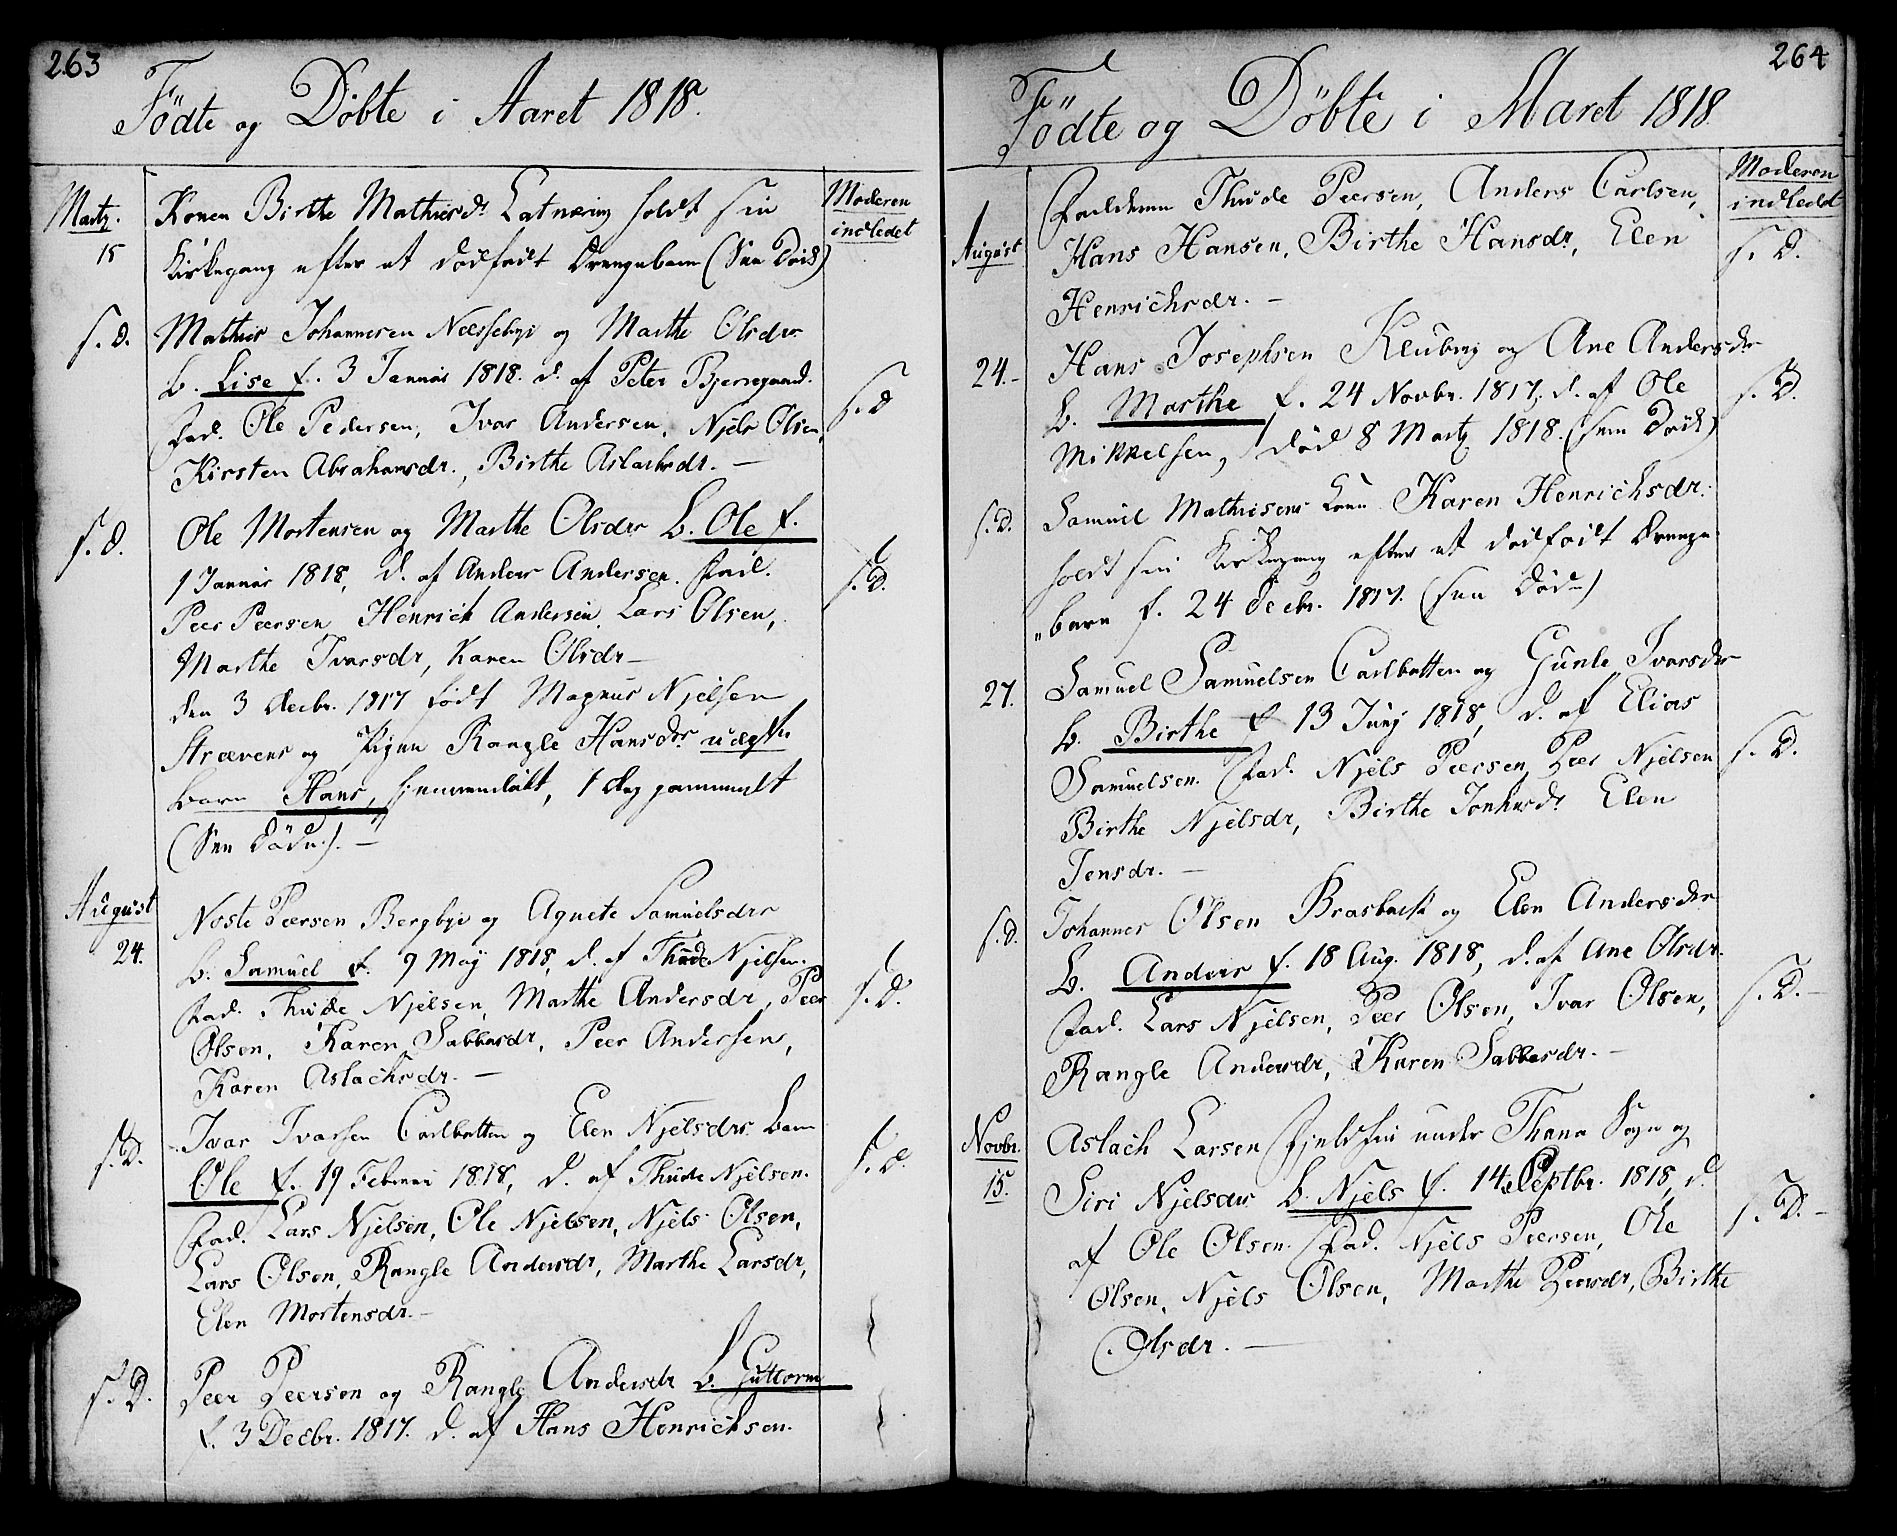 263
Födte og Döbte i Aaret 1818.
Martz. 15
Moderen indledet
Konen Birthe Mathisdr Latnæring holdt sin
Kirkegang efter et dödfødt Drengebarn (See Død)
s. d. Mathis Johannesen Næssebye og Marthe Olsdr
b. Lise f. 3 Januar 1818. d. af Peter Bjerregaard. s. d
Fad. Ole Pedersen, Ivar Andersen, Njels Olsen,
Kirsten Abrahamsdr., Birthe Aslachsdr. —
s. d. Ole Mortensen og Marthe Olsdr b. Ole f.
1 Januar 1818, d. af Anders Andersen. Fad. s. d.
Peer Peersen, Henrich Andersen, Lars Olsen,
Marthe Ivarsdr, Karen Olsdr —
den 3 Decbr. 1817 födt Magnus Njelsen
Strævens og Pigen Rangle Hansdr uægte
barn Hans, hjemmedöbt, 1 dag gammelt
(See Döde). —
August 24.
Noste Peersen Bergbye og Agnete Samuelsdr
b. Samuel f. 9 Maj 1818, d. af Thude Njelsen. s. d.
Fad. Thude Njelsen, Marthe Andersdr, Peer
Olsen, Karen Sabbasdr, Peer Andersen,
Karen Aslachsdr. —
s. d. Ivar Ivarsen Carlbatten og Elen Njelsdr barn
Ole f. 19 Februar 1818, d. af Thude Njelsen. s. d.
Fad. Lars Njelsen, Ole Njelsen, Njels Olsen,
Lars Olsen, Rangle Andersdr, Marthe Larsdr,
Elen Mortensdr. —
s. d. Peer Peersen og Rangle Andersdr b. Guttorm
f. 3 Decbr. 1817. d. af Hans Henrichsen.
264
Födte og Döbte i Aaret 1818.
Moderen indledet
Faddere Thude Peersen, Anders Carlsen,
August Hans Hansen, Birthe Hansdr, Elen s. d.
Henrichsdr. —
24.- Hans Josephsen Klubvig og Ane Andersdr
b. Marthe f. 24 Novbr. 1817, d. af Ole s. d.
Mikkelsen, död 8 Martz 1818. (see Död)
s. d. Samuel Mathisens Kone Karen Henrichsdr.
holdt sin Kirkegang efter et dödfödt Drenge
"barn f. 24 Decbr. 1817. (see Död)
27. Samuel Samuelsen Carlbatten og Gunle Ivarsdr
b. Birthe f. 13 Junj 1818, d. af Elias
Samuelsen. Fad. Njels Peersen, Peer Njelsen s. d.
Birthe Njelsdr, Birthe Elen
Jensdr. —
s. d. Johannes Olsen Brasback og Elen Andersdr
b. Anders f. 18 Aug. 1818, d. af Ane Olsdr. s. d. —
Fad. Lars Njelsen, Peer Olsen, Ivar Olsen,
Rangle Andersdr, Karen Sabbasdr. —
Novbr. 15. Aslach Larsen Fjeldfin under Thana Sogn og
Siri Njelsdr b. Njels f. 14 Septbr. 1818, d. s. d. —
af Ole Olsen. Fad. Njels Peersen, Ole
Olsen, Njels Olsen, Marthe Peersdr, Birthe
Olsdr. —